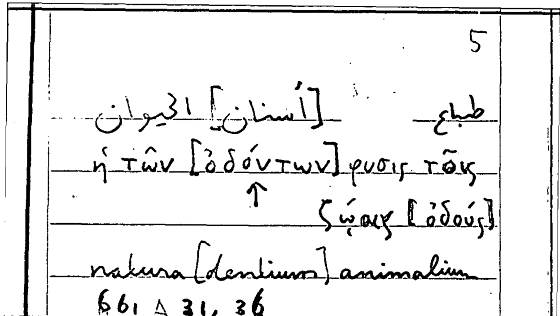 5
طباع [أسنان] الحيوان
ἡ τῶν [ὀδόντων] φυσις τοῖς
↑
ζῴοις [ὀδούς]
natura [dentium] animalium
66, Δ 31, 36